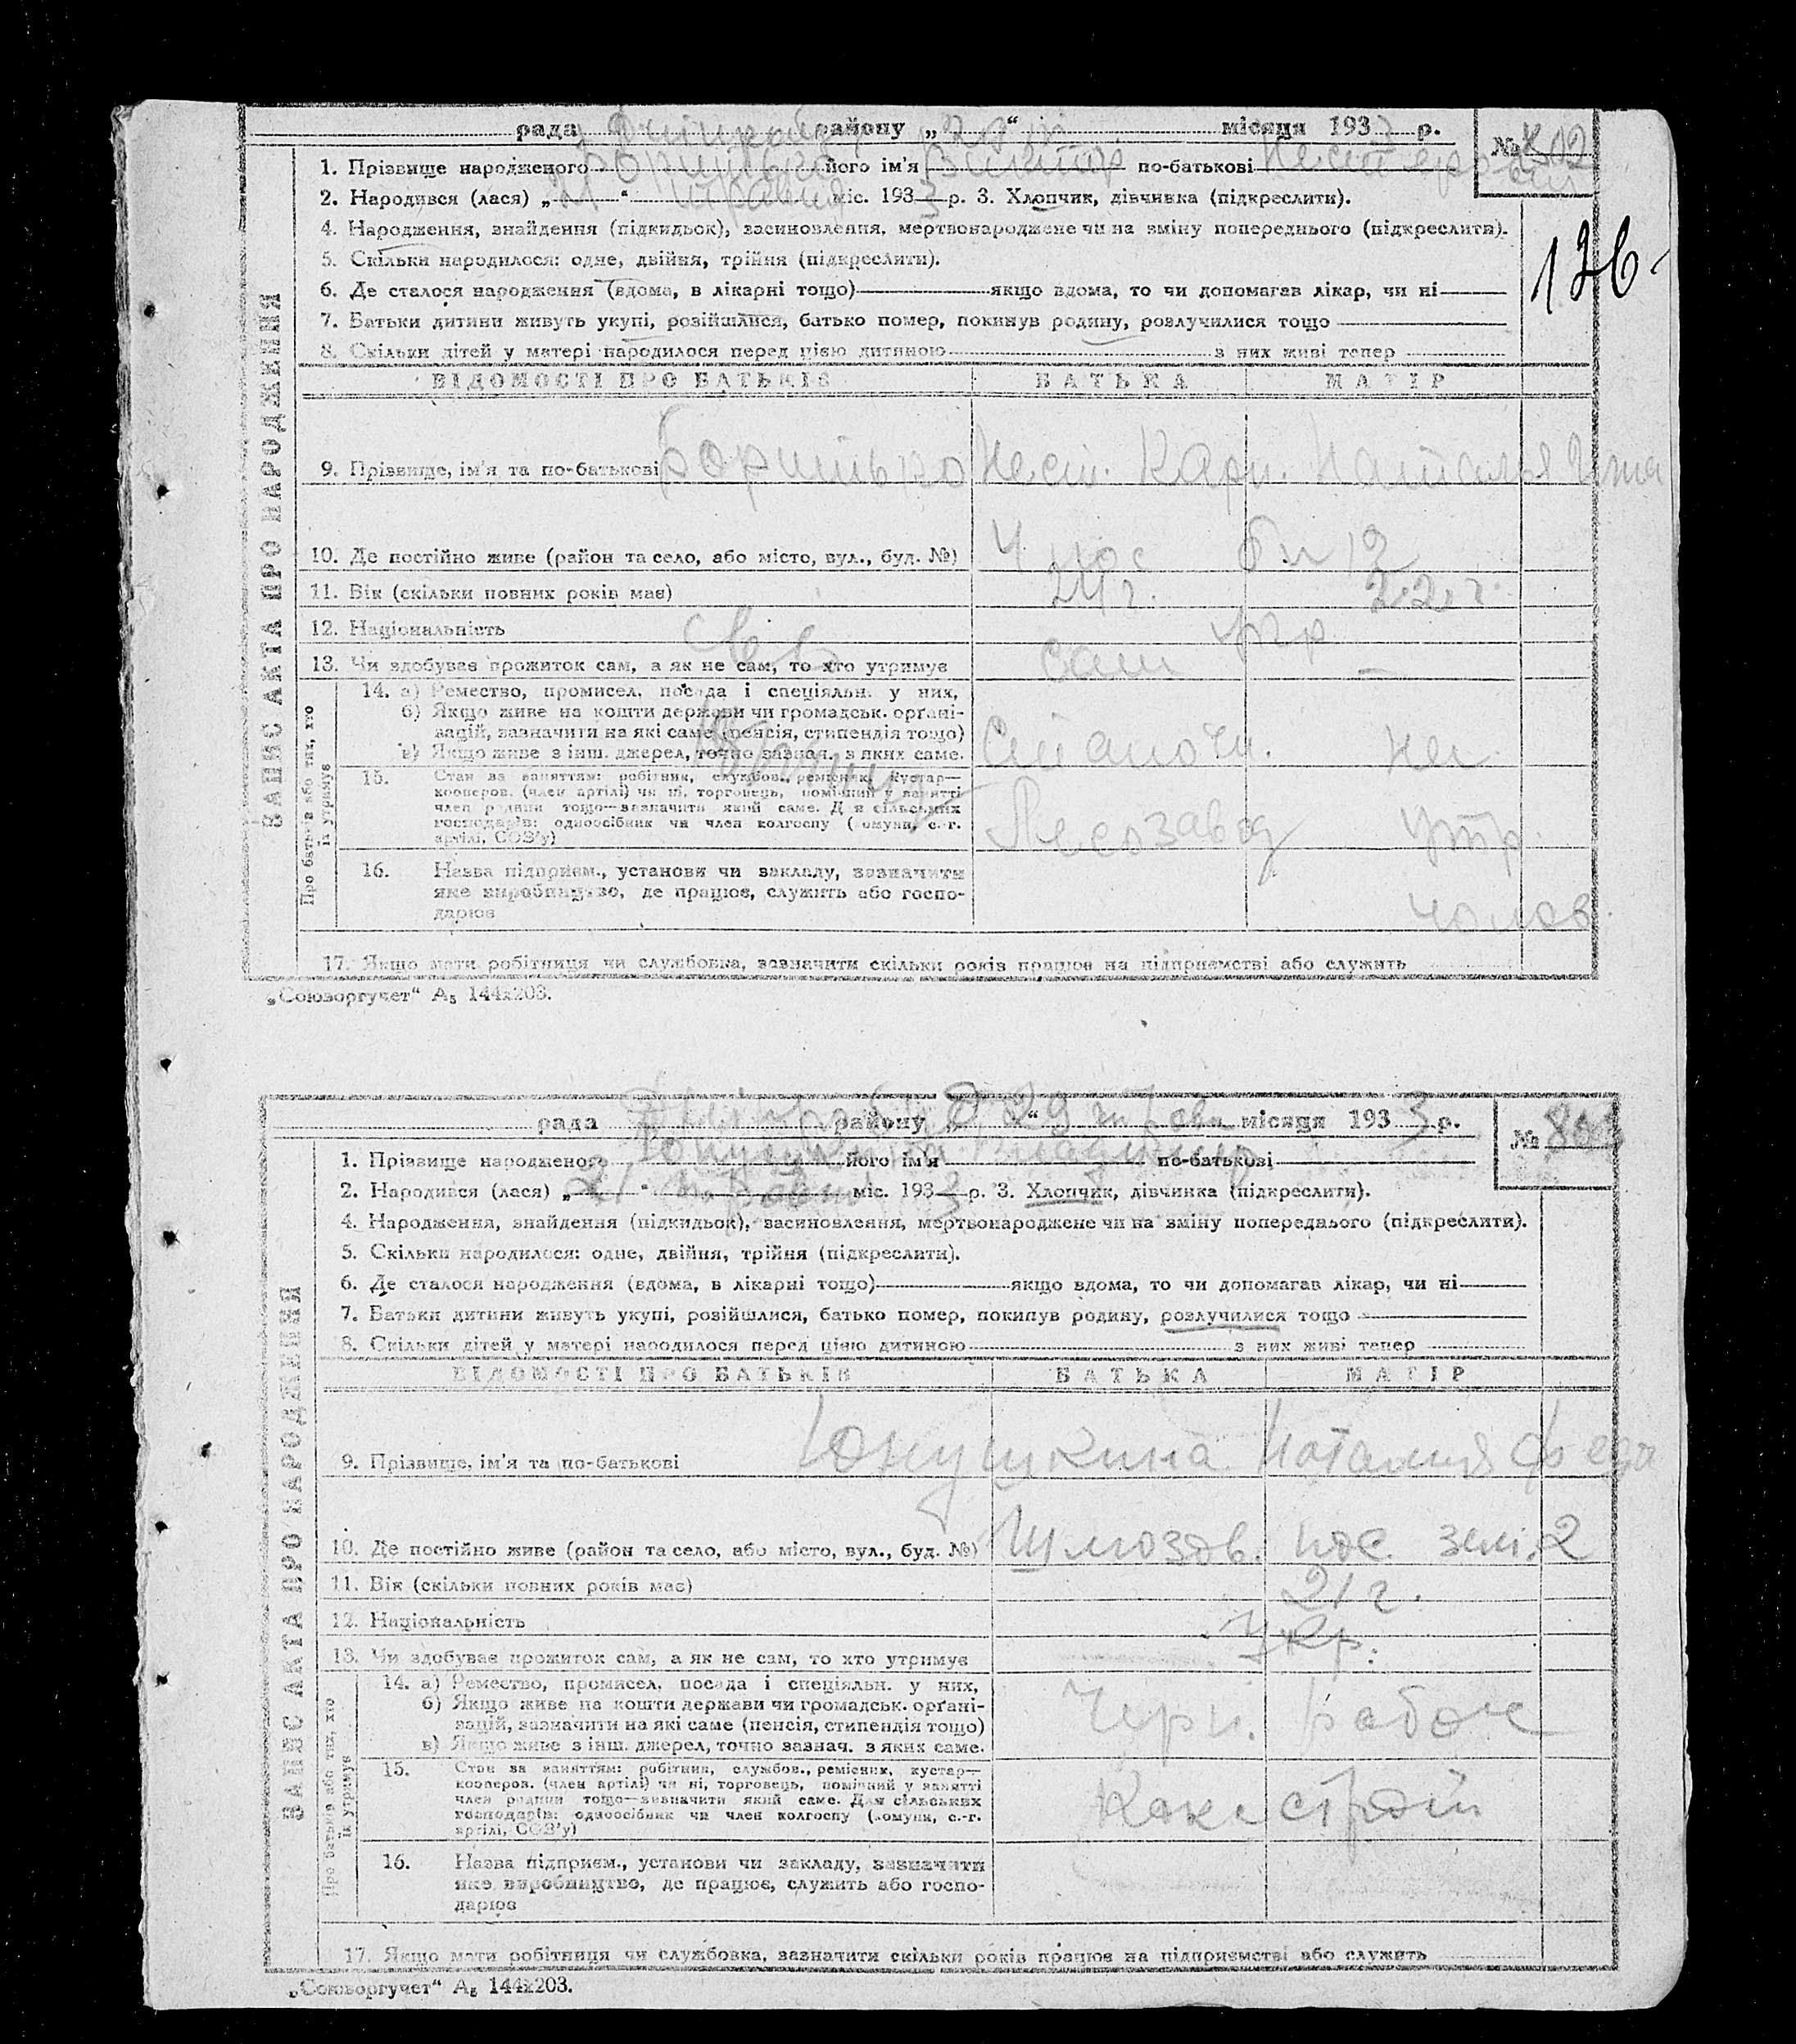 рада району „29 " місяця 193 р. № 802
1. Прізвище народженого Боритько його ім'я Виктор по-батькові
2. Народився (лася) „ " травня міс. 1933 р. 3. Хлопчик, дівчинка (підкреслити).
4. Народження, знайдення (підкидьок), засиновлення, мертвонароджене чи на зміну попереднього (підкреслити).
136
5. Скільки народилося: одне, двійня, трійня (підкреслити).
6. Де сталося народження (вдома, в лікарні тощо) якщо вдома, то чи допомагав лікар, чи ні
7. Батьки дитини живуть укупі, розійшлися, батько помер, покинув родину, розлучилися тощо
8. Скільки дітей у матері народилося перед цією дитиною з них живі тепер
ЗАПИС АКТА ПРО НАРОДЖЕННЯ
ВІДОМОСТІ ПРО БАТЬКІВ БАТЬКА МАТІР
9. Прізвище, ім'я та по-батькові Боритько Нест. Карп. Наталья
10. Де постійно живе (район та село, або місто, вул., буд. №) 4 пос
11. Вік (скільки повних років має) 24 г. 22 г.
12. Національність укр
13. Чи здобуває прожиток сам, а як не сам, то хто утримує сам —
Про батьків або тих, хто їх утримує
14. а) Ремество, промисел, посада і спеціяльн. у них,
б) Якщо живе на кошти держави чи громадськ. органі-
зацій, зазначити на які саме (пенсія, стипендія тощо)
в) Якщо живе з інш. джерел, точно зазнач. з яких саме.
Станочн. нег
15. Стан за заняттям: робітник, службов., ремісник, кустар—
кооперов. (член артілі) чи ні, торговець, помічний у занятті
член родини тощо—зазначити який саме. Для сільських
господарів: одноосібник чи член колгоспу (комуни, с.-г.
артілі, СОЗ'у)
Лесозавод утр.
16. Назва підприєм., установи чи закладу, зазначити
яке виробництво, де працює, служить або госпо-
дарює
чолов.
17. Якщо мати робітниця чи службовка, зазначити скільки років працює на підприємстві або служить
„Союзоргучет" А₅ 144х203.
рада району „29 " місяця 1933 р. №
1. Прізвище народженого його ім'я Владимир по-батькові
2. Народився (лася) „21 " травня міс. 1933 р. 3. Хлопчик, дівчинка (підкреслити).
4. Народження, знайдення (підкидьок), засиновлення, мертвонароджене чи на зміну попереднього (підкреслити).
5. Скільки народилося: одне, двійня, трійня (підкреслити).
6. Де сталося народження (вдома, в лікарні тощо) якщо вдома, то чи допомагав лікар, чи ні
7. Батьки дитини живуть укупі, розійшлися, батько помер, покинув родину, розлучилися тощо
8. Скільки дітей у матері народилося перед цією дитиною з них живі тепер
ЗАПИС АКТА ПРО НАРОДЖЕННЯ
ВІДОМОСТІ ПРО БАТЬКІВ БАТЬКА МАТІР
9. Прізвище, ім'я та по-батькові Юнушкина Наталия Федо
10. Де постійно живе (район та село, або місто, вул., буд. №) Шлюзов. пос. зем. 2
11. Вік (скільки повних років має) 21 г.
12. Національність Укр.
13. Чи здобуває прожиток сам, а як не сам, то хто утримує
Про батьків або тих, хто їх утримує
14. а) Ремество, промисел, посада і спеціяльн. у них,
б) Якщо живе на кошти держави чи громадськ. органі-
зацій, зазначити на які саме (пенсія, стипендія тощо)
в) Якщо живе з інш. джерел, точно зазнач. з яких саме.
Черн. рабоч
15. Стан за заняттям: робітник, службов., ремісник, кустар—
кооперов. (член артілі) чи ні, торговець, помічний у занятті
член родини тощо—зазначити який саме. Для сільських
господарів: одноосібник чи член колгоспу (комуни, с.-г.
артілі, СОЗ'у)
Коксстрой
16. Назва підприєм., установи чи закладу, зазначити
яке виробництво, де працює, служить або госпо-
дарює
17. Якщо мати робітниця чи службовка, зазначити скільки років працює на підприємстві або служить
„Союзоргучет" А₅ 144х203.